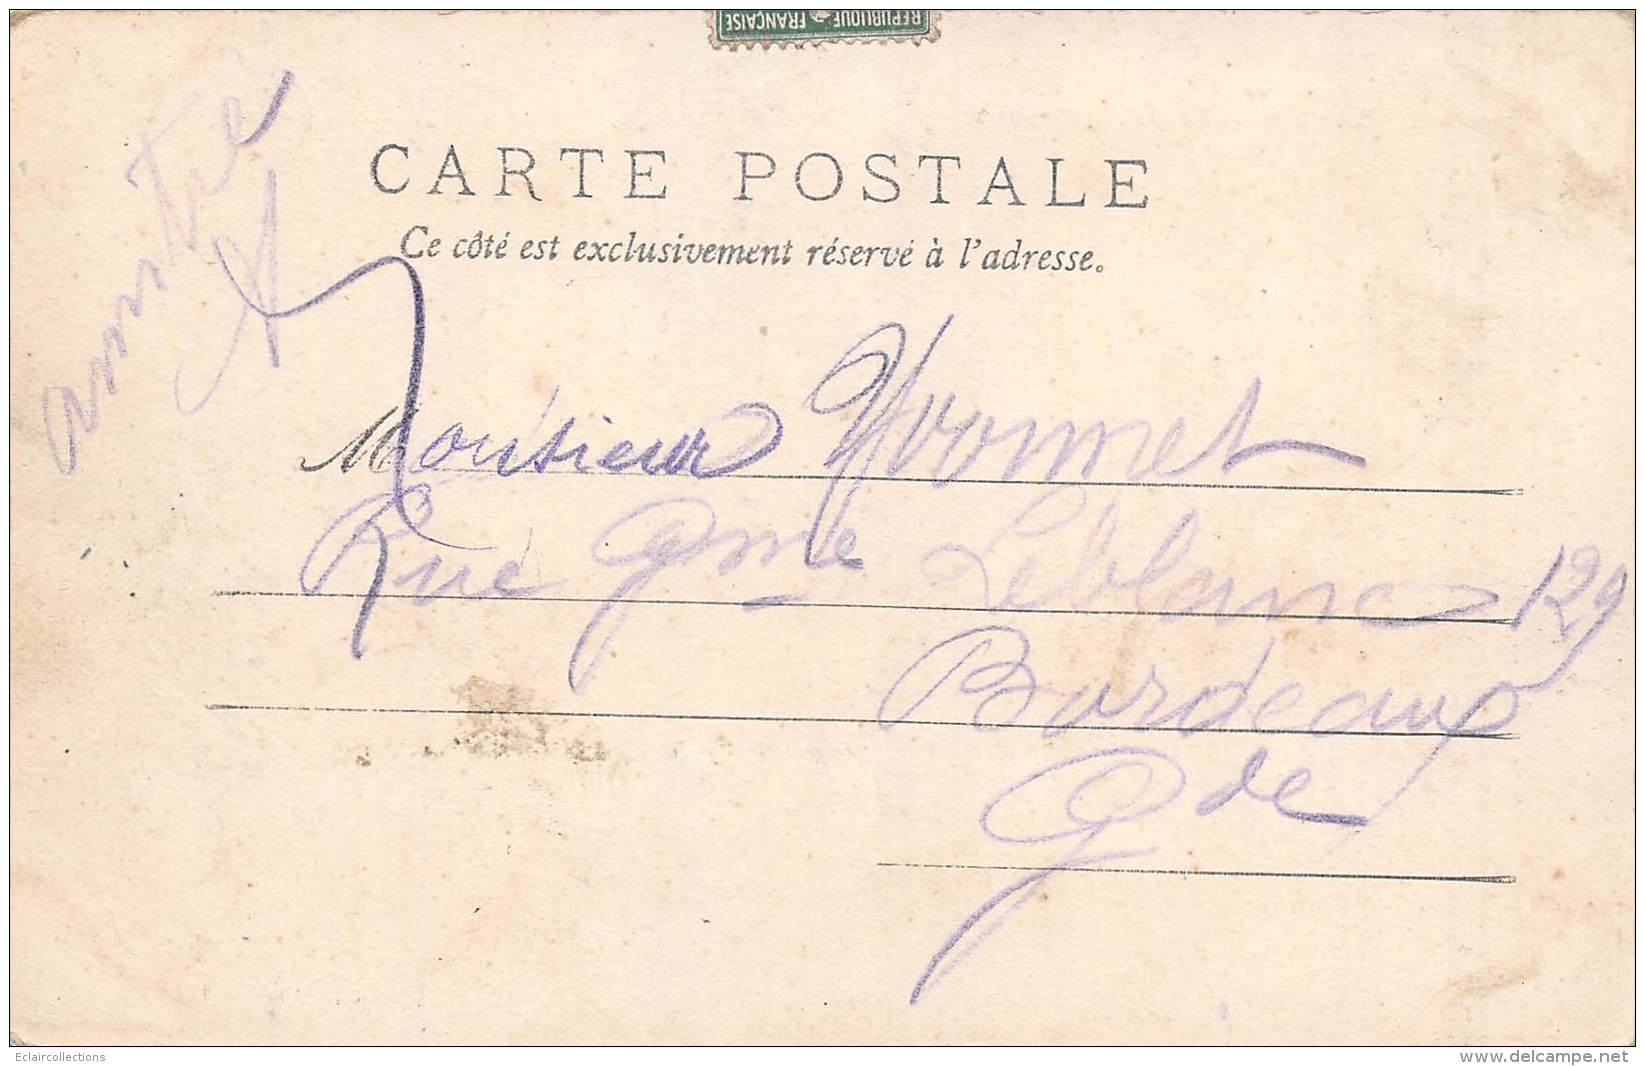 REPUBLIQUE FRANÇAISE
amitie
CARTE POSTALE
Ce côté est exclusivement réservé à l'adresse.
Monsieur Yvonnet
Rue Gme Leblanc 129
Bordeaux
Gde
Eclaircollections
www.delcampe.net